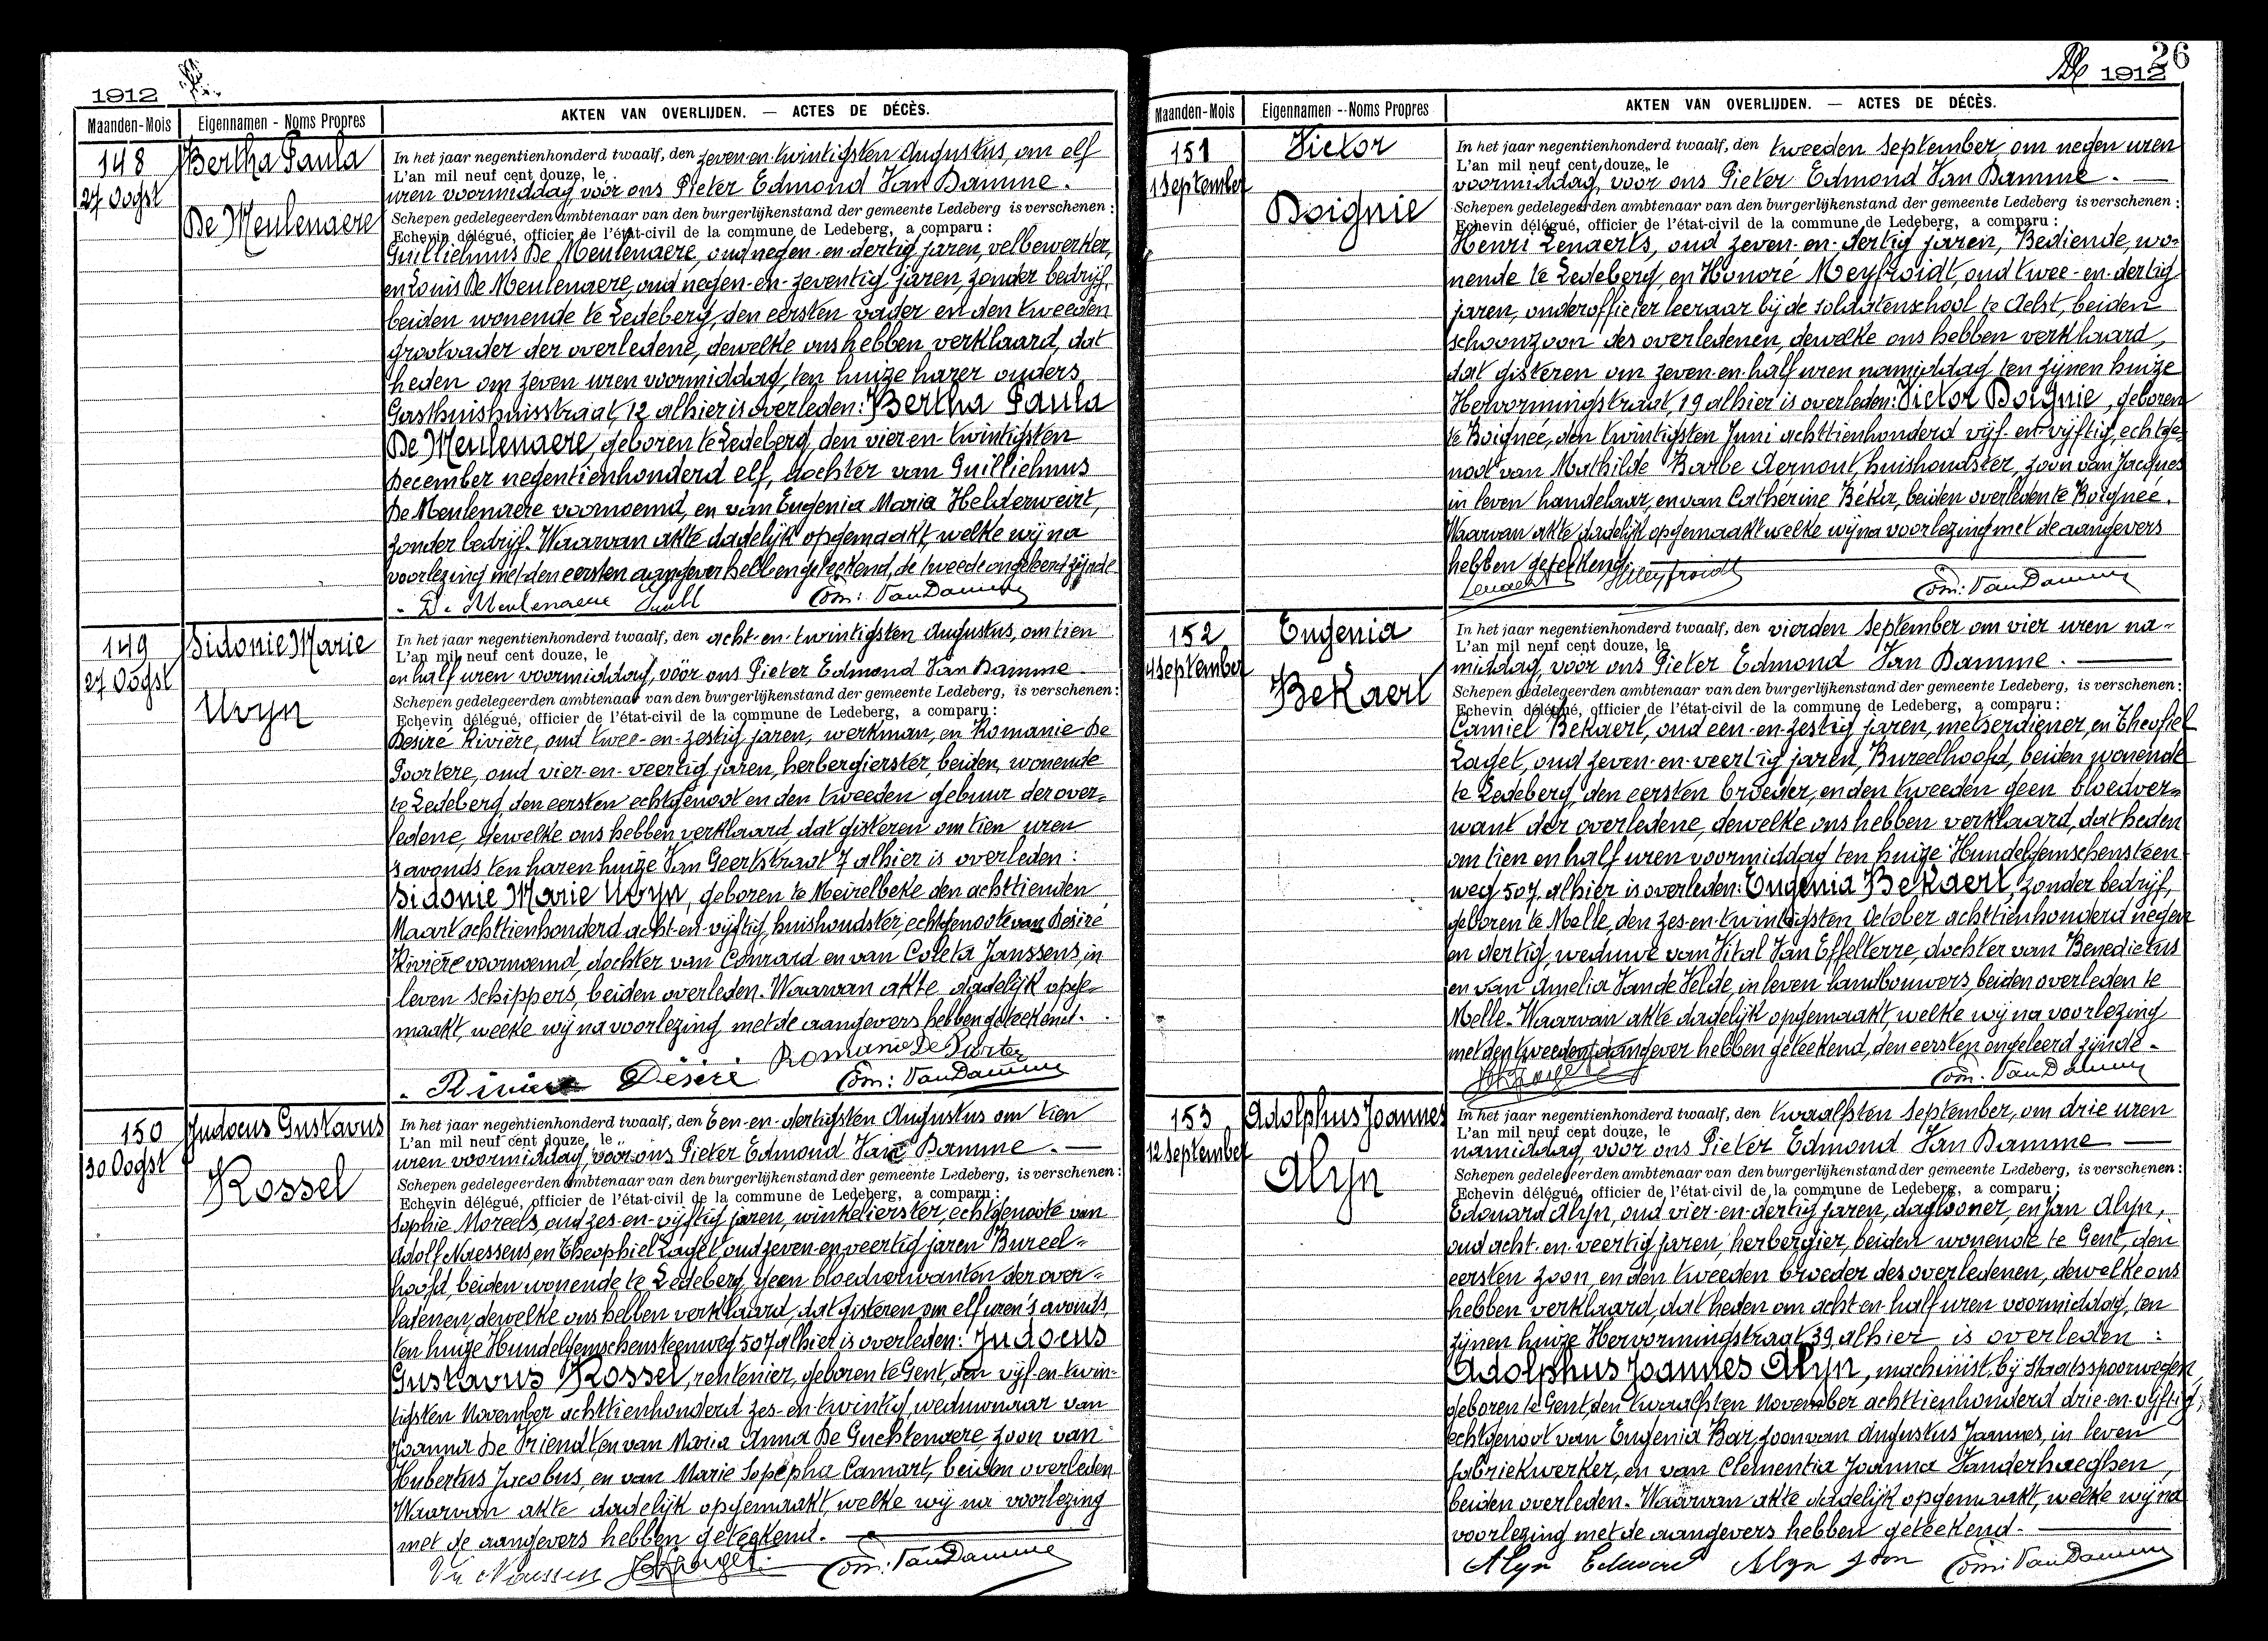 1912
Maanden-Mois
Eigennamen - Noms Propres
AKTEN VAN OVERLIJDEN. — ACTES DE DÉCÈS.
148
27 Oogst
Bertha Paula
De Meulenaere
In het jaar negentienhonderd twaalf, den zeven-en-twintigsten Augustus, om elf
L'an mil neuf cent douze, le
uren voormiddag voor ons Pieter Edmond Van Damme.
Schepen gedelegeerden ambtenaar van den burgerlijkenstand der gemeente Ledeberg is verschenen :
Echevin délégué, officier de l'état-civil de la commune de Ledeberg, a comparu :
Guillielmus De Meulenaere, oud negen-en-dertig jaren, velbewerker,
en Louis De Meulenaere, oud negen-en-zeventig jaren, zonder bedrijf,
beiden wonende te Ledeberg, den eersten vader en den tweeden
grootvader der overledene, dewelke ons hebben verklaard, dat
heden om zeven uren voormiddag, ten huize harer ouders
Gasthuishuisstraat, 12 alhier is overleden: Bertha Paula
De Meulenaere, geboren te Ledeberg, den vier en-twintigsten
December negentienhonderd elf, dochter van Guillielmus
De Meulenaere voornoemd, en van Eugenia Maria Helderweirt,
zonder bedrijf. Waarvan akte dadelijk opgemaakt, welke wij na
voorlezing met den eersten aangever hebben geteekend, de tweede ongeleerd zijnde
De Meulenaere Guill Edm: Van Damme
149
27 Oogst
Sidonie Marie
Uvyn
In het jaar negentienhonderd twaalf, den acht-en-twintigsten Augustus, om tien
L'an mil neuf cent douze, le
en half uren voormiddag, vóór ons Pieter Edmond Van Damme.
Schepen gedelegeerden ambtenaar van den burgerlijkenstand der gemeente Ledeberg, is verschenen :
Echevin délégué, officier de l'état-civil de la commune de Ledeberg, a comparu :
Desiré Rivière, oud twee-en-zestig jaren, werkman, en Romanie De
Poortere, oud vier-en-veertig jaren, herbergierster, beiden, wonende
te Ledeberg, den eersten echtgenoot en den tweeden gebuur der over-
ledene, dewelke ons hebben verklaard dat gisteren om tien uren
s'avonds ten haren huize Van Geertstraat 7 alhier is overleden :
Sidonie Marie Uvyn, geboren te Meirelbeke den achttienden
Maart achttienhonderd acht-en-vijftig, huishoudster, echtgenoote van Desiré
Rivière voornoemd, dochter van Conrard en van Coleta Janssens, in
leven schippers, beiden overleden. Waarvan akte dadelijk opge-
maakt, welke wij na voorlezing met de aangevers hebben geteekend.
Romanie De Purter
Rivière Désiré Edm: Van Damme
150
30 Oogst
Judocus Gustavus
Rossel
In het jaar negentienhonderd twaalf, den Een-en-dertigsten Augustus om tien
L'an mil neuf cent douze, le
uren voormiddag, voor ons Pieter Edmond Van Damme. —
Schepen gedelegeerden ambtenaar van den burgerlijkenstand der gemeente Ledeberg, is verschenen :
Echevin délégué, officier de l'état-civil de la commune de Ledeberg, a comparu :
Sophie Moreels, oud zes-en-vijftig jaren, winkelierster, echtgenoote van
Adolf Naessens, en Theophiel Laget, oud zeven-en-veertig jaren Bureel-
hoofd, beiden wonende te Ledeberg, geen bloedverwanten der over-
ledenen, dewelke ons hebben verklaard, dat gisteren om elf uren 's avonds
ten huize Hundelgemschensteenweg 507 alhier is overleden: Judocus
Gustavus Rossel, rentenier, geboren te Gent, den vijf-en-twin-
tigsten November achttienhonderd zes-en-twintig, weduwnaar van
Joanna De Vriendt, en van Maria Anna De Guchtenaere, zoon van
Hubertus Jacobus, en van Marie Sopepha Camart, beiden overleden
Waarvan akte dadelijk opgemaakt, welke wij na voorlezing
met de aangevers hebben geteekend. —
Edm: Van Damme
26
1912
Maanden-Mois
Eigennamen - Noms Propres
AKTEN VAN OVERLIJDEN. — ACTES DE DÉCÈS.
151
1 September
Victor
Boignie
In het jaar negentienhonderd twaalf, den tweeden September, om negen uren
L'an mil neuf cent douze, le
voormiddag, voor ons Pieter Edmond Van Damme. —
Schepen gedelegeerden ambtenaar van den burgerlijkenstand der gemeente Ledeberg is verschenen :
Echevin délégué, officier de l'état-civil de la commune de Ledeberg, a comparu :
Henri Lenaerts, oud zeven-en-dertig jaren, Bediende, wo-
nende te Ledeberg, en Honoré Meyfroidt, oud twee-en-dertig
jaren, onderofficier leeraar bij de soldatenschool te Aelst, beiden
schoonzoon des overledenen, dewelke ons hebben verklaard,
dat gisteren om zeven-en-half uren namiddag ten zijnen huize
Hervormingstraat, 19 alhier is overleden: Victor Boignie, geboren
te Boignée, den twintigsten Juni achttienhonderd vijf-en-vijftig, echtge-
noot van Mathilde Barbe Aernout, huishoudster, zoon van Jacques
in leven handelaar, en van Catherine Békir, beiden overleden te Boignée.
Waarvan akte dadelijk opgemaakt welke wij na voorlezing met de aangevers
hebben geteekend.
Lenaerts HMeyfroidt Edm: Van Damme
152
4 September
Eugenia
Bekaert
In het jaar negentienhonderd twaalf, den vierden September om vier uren na-
L'an mil neuf cent douze, le
middag, voor ons Pieter Edmond Van Damme. —
Schepen gedelegeerden ambtenaar van den burgerlijkenstand der gemeente Ledeberg, is verschenen :
Echevin délégué, officier de l'état-civil de la commune de Ledeberg, a comparu :
Camiel Bekaert, oud een-en-zestig jaren, metserdiener, en Theofiel
Laget, oud zeven-en-veertig jaren, Bureelhoofd, beiden wonende
te Ledeberg, den eersten broeder, en den tweeden geen bloedver-
want der overledene, dewelke ons hebben verklaard, dat heden
om tien en half uren voormiddag ten huize Hundelgemschensteen
weg 507. alhier is overleden: Eugenia Bekaert, zonder bedrijf,
geboren te Melle, den zes-en-twintigsten October achttienhonderd negen
en dertig, weduwe van Vital Van Effelterre, dochter van Benedictus
en van Amelia Van de Velde, in leven landbouwers, beiden overleden te
Melle. Waarvan akte dadelijk opgemaakt, welke wij na voorlezing
met den tweeden aangever hebben geteekend, den eersten ongeleerd zijnde.
Edm. Van Damme
153
12 September
Adolphus Joannes
Alyn
In het jaar negentienhonderd twaalf, den twaalfsten September, om drie uren
L'an mil neuf cent douze, le
namiddag, voor ons Pieter Edmond Van Damme —
Schepen gedelegeerden ambtenaar van den burgerlijkenstand der gemeente Ledeberg, is verschenen :
Echevin délégué, officier de l'état-civil de la commune de Ledeberg, a comparu :
Edouard Alyn, oud vier-en-dertig jaren, daglooner, en Jan Alyn,
oud acht-en-veertig jaren, herbergier, beiden wonende te Gent, den
eersten zoon en den tweeden broeder des overledenen, dewelke ons
hebben verklaard, dat heden om acht en half uren voormiddag, ten
zijnen huize Hervormingstraat 39 alhier is overleden :
Adolphus Joannes Alyn, machinist bij Staatsspoorwegen,
geboren te Gent, den twaalfsten November achttienhonderd drie-en-vijftig,
echtgenoot van Eugenia Bar, zoon van Augustus Joannes, in leven
fabriekwerker, en van Clementia Joanna Vanderhaeghen,
beiden overleden. Waarvan akte dadelijk opgemaakt, welke wij na
voorlezing met de aangevers hebben geteekend. —
Alyn Eduard Alyn Joon Edm: Van Damme